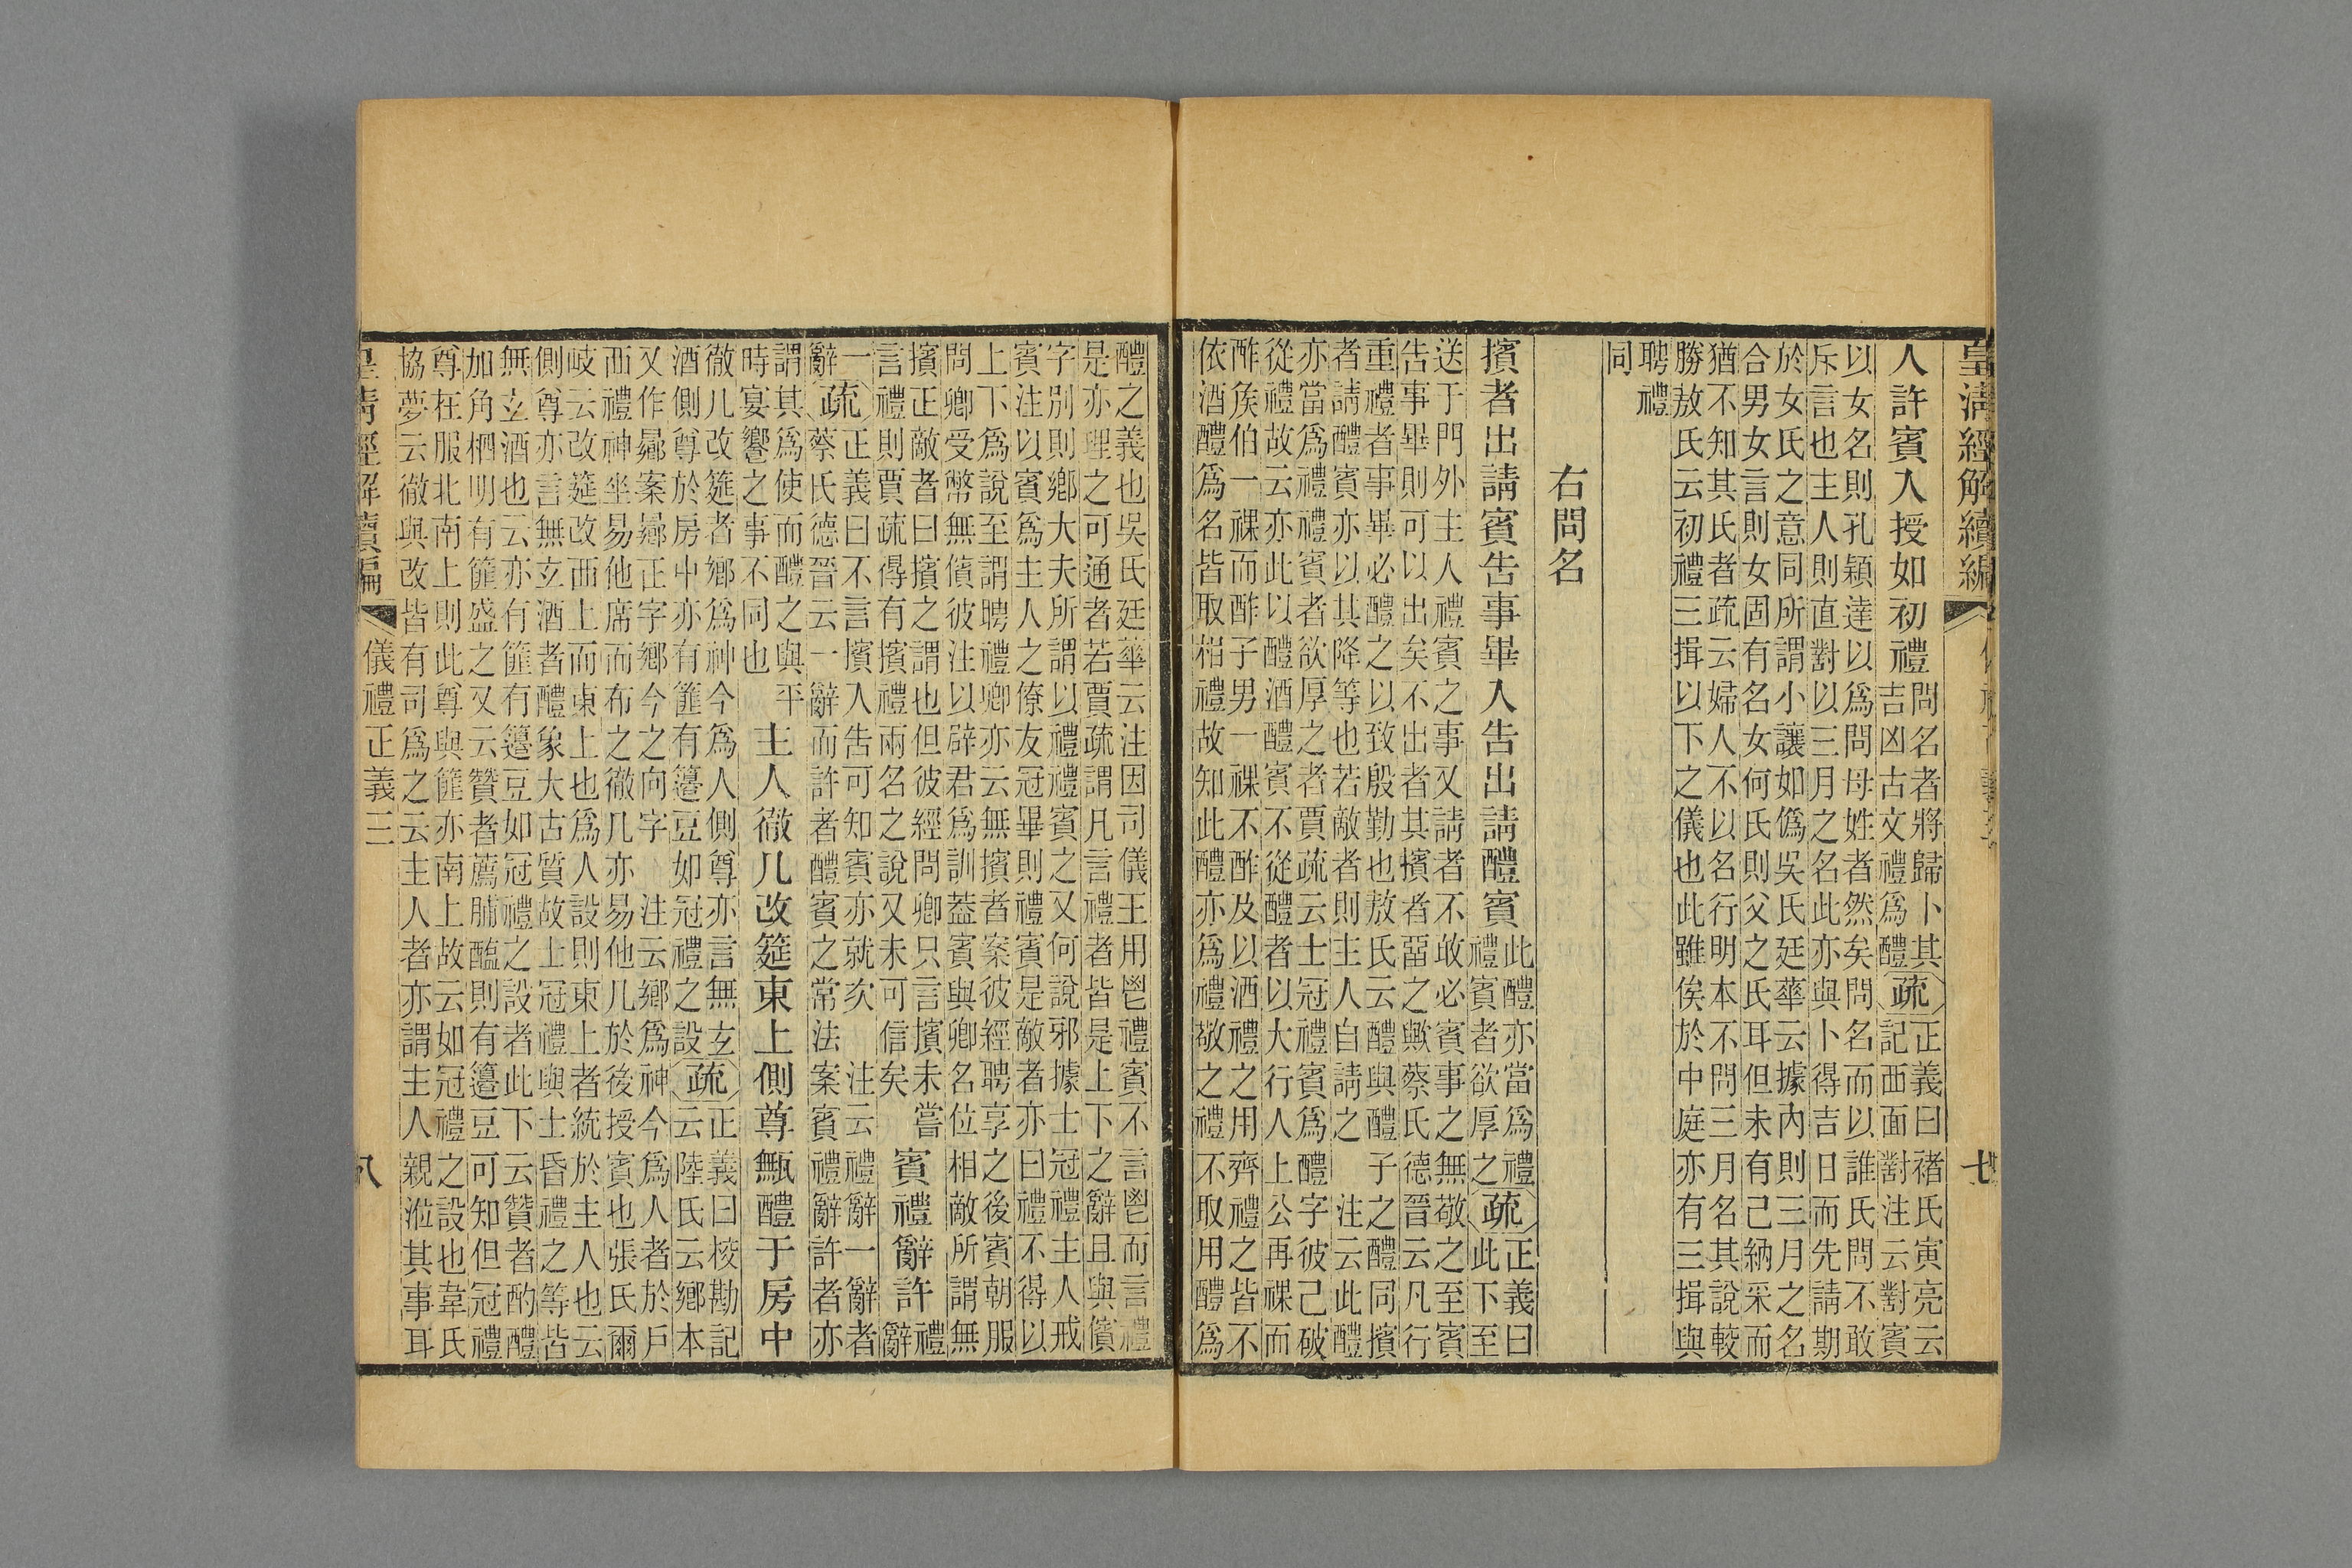 皇清經解續編
七
人許賓入授如初禮
問名者將歸卜其
吉凶古文禮爲醴
疏
正義曰禇氏寅亮云
記西面對注云對賓
以女名則孔穎達以爲問母姓者然矣問名而以誰氏問不敢
斥言也主人則直對以三月之名此亦與卜得吉日而先請期
於女氏之意同所謂小讓如僞吳氏廷華云據內則三月之名
合男女言則女固有名女何氏則父之氏耳但未有己納采而
猶不知其氏者疏云婦人不以名行明本不問三月名其說較
勝敖氏云初禮三揖以下之儀也此雖俟於中庭亦有三揖與
聘禮
同
右問名
擯者出請賓告事畢入告出請醴賓
此醴亦當爲禮
禮賓者欲厚之
疏
正義曰
此下至
送于門外主人禮賓之事又請者不敢必賓事之無敬之至賓
告事畢則可以出矣不出者其擯者惡之歟蔡氏德晉云凡行
重禮者事畢必醴之以致殷勤也敖氏云醴與醴子之醴同擯
者請醴賓亦以其降等也若敵者則主人自請之 注云此醴
亦當爲禮禮賓者欲厚之者賈疏云士冠禮賓爲醴字彼己破
從禮故云亦此以醴酒醴賓不從醴者以大行人上公再祼而
酢侯伯一祼而酢子男一祼不酢及以酒禮之用齊禮之皆不
依酒醴爲名皆取相禮故知此醴亦爲禮敬之禮不取用醴爲
醴之義也吳氏廷華云注因司儀王用鬯禮賓不言鬯而言禮
是亦理之可通者若賈疏謂凡言禮者皆是上下之辭且與儐
字別則鄉大夫所謂以禮禮賓之又何說邪據士冠禮主人戒
賓注以賓爲主人之僚友冠畢則禮賓是敵者亦曰禮不得以
上下爲說至謂聘禮卿亦云無擯者案彼經聘享之後賓朝服
問卿受幣無儐彼注以辟君爲訓葢賓與卿名位相敵所謂無
擯正敵者曰擯之謂也但彼經問卿只言擯未嘗
言禮則賈疏得有擯禮兩名之說又未可信矣
賓禮辭許
禮
辭
一
辭
疏
正義曰不言擯人告可知賓亦就次 注云禮辭一辭者
蔡氏德晉云一辭而許者醴賓之常法 案賓禮辭許者亦
謂其爲使而醴之與平
時宴饗之事不同也
主人徹几改筵東上側尊甒醴于房中
徹几改筵者鄉爲神今爲人側尊亦言無玄
酒側尊於房中亦有篚有籩豆如冠禮之設
疏
正義曰校勘記
云陸氏云鄉本
又作曏案曏正字鄉今之向字 注云鄉爲神今爲人者於戶
西禮神坐易他席而布之徹几亦易他几於後授賓也張氏爾
岐云改筵改西上而東上也爲人設則東上者統於主人也云
側尊亦言無玄酒者醴象大古質故士冠禮與士昏禮之等皆
無玄酒也云亦有篚有籩豆如冠禮之設者此下云贊者酌醴
加角柶明有篚盛之又云贊者薦脯醢則有籩豆可知但冠禮
尊在服北南上則此尊與篚亦南上故云如冠禮之設也韋氏
協夢云徹與改皆有司爲之云主人者亦謂主人親涖其事耳
皇清經解續編
儀禮正義三
八